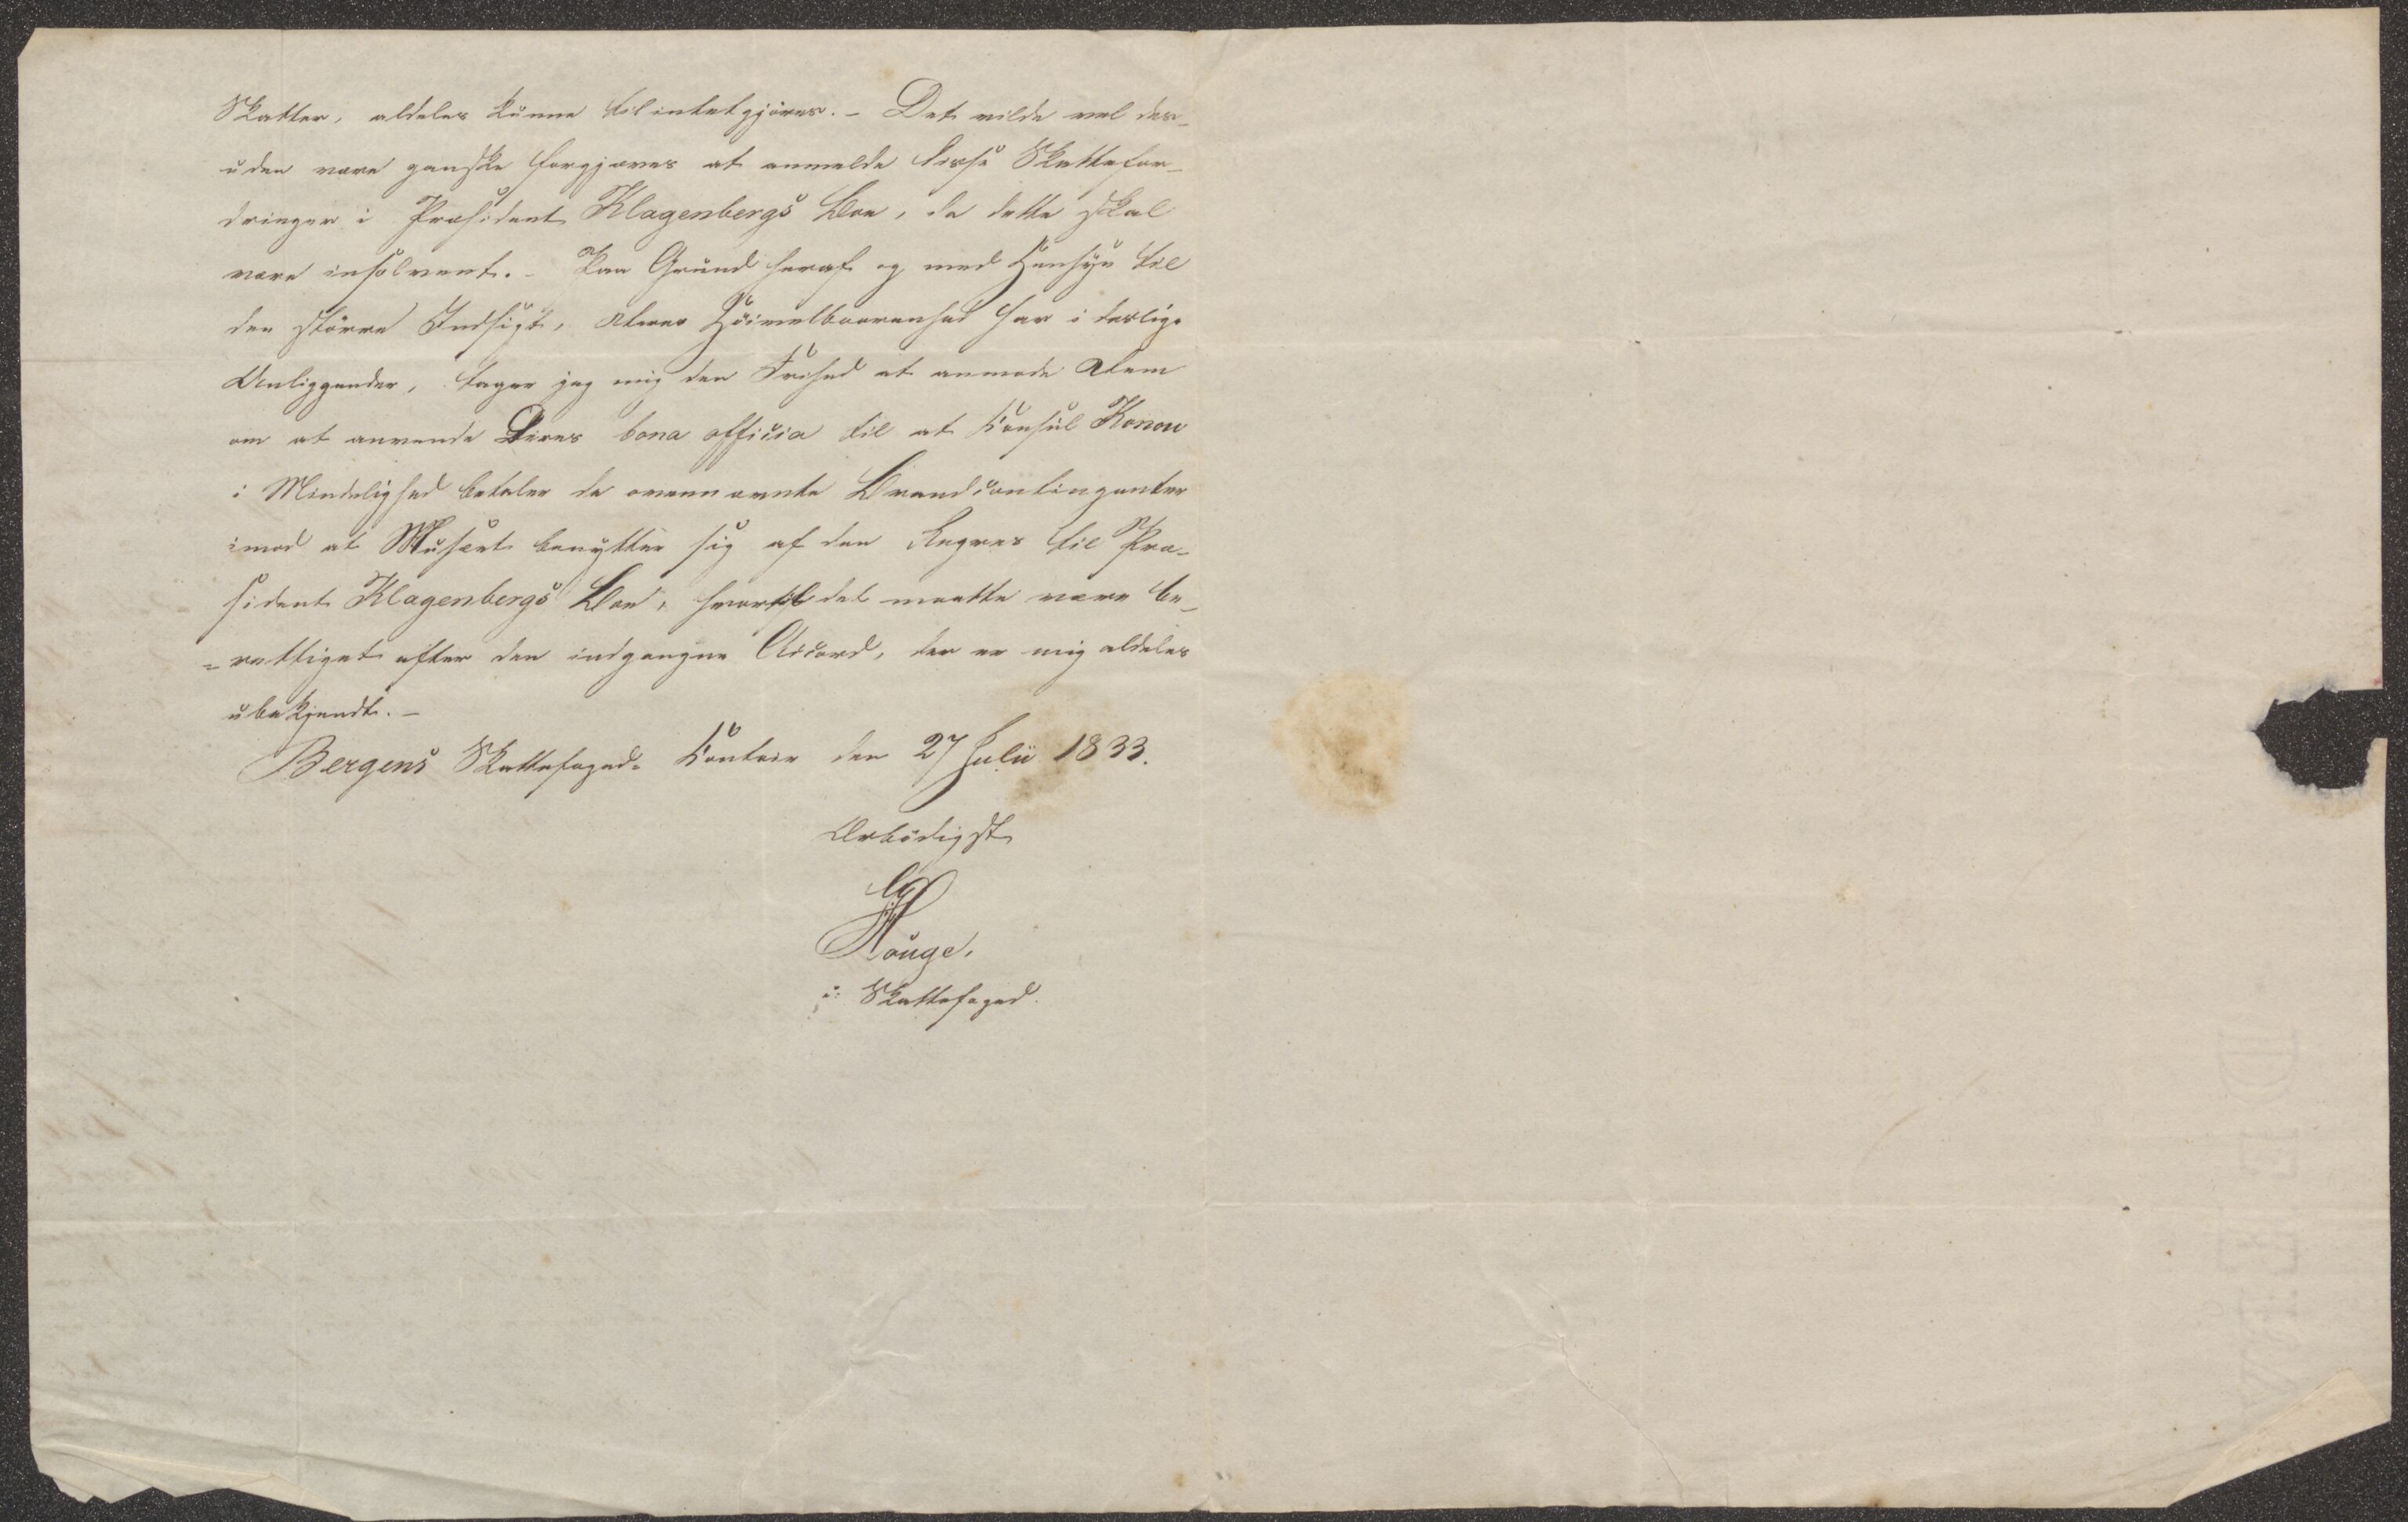 Skatter, aldeles kunne tilintetgjøres. – Det vilde vel des-
uden være ganske forgjæves at anmelde disse Skattefor-
dringer i Præsident Klagenbergs Boe, da dette skal
være insolvent. – Paa Grund heraf og med Hensyn til
den større Indsigt, Deres Høivelbaarenhed har i deslige
Anliggender, tager jeg mig den Frihed at anmode Dem
om at anvende Deres bona officia til at Consul Konow
i Mindelighed betaler de ovennævnte Brandcontingenter
imod at Musæet benytter sig af den Regres til Præ-
sident Klagenbergs Boe, hvortil det maatte være be-
=rettiget efter den indgangne Accord, der er mig aldeles
ubekjendt. –
Bergens Skattefoged-Contoir den 27 Julii 1833.
Ærbødigst
Houge.
Skattefoged.